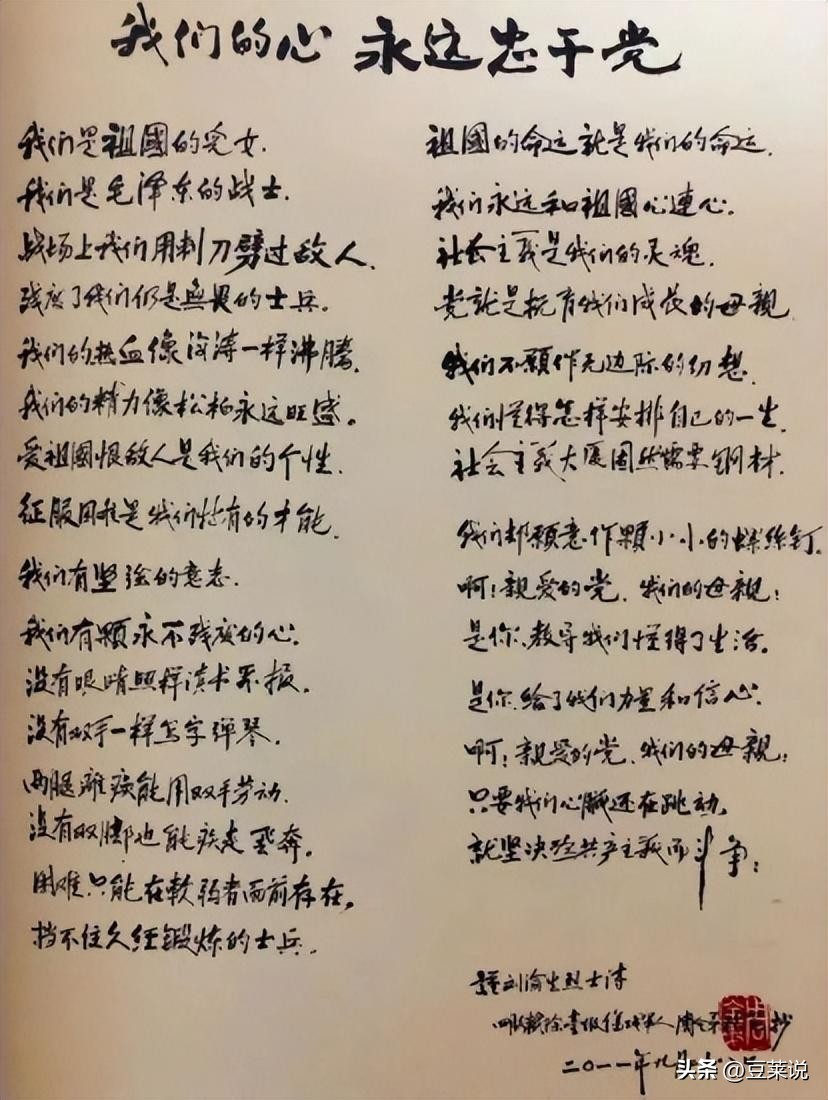 我们的心 永远忠于党
我们是祖國的兒女.
我们是毛泽东的战士.
战场上我们用刺刀劈过敌人.
残废了我们仍是無畏的士兵.
我们的热血像波涛一样沸腾.
我们的精力像松柏永远旺盛。
爱祖國恨敌人是我们的个性.
征服困难是我们特有的才能.
我们有坚强的意志.
我们有顆永不残废的心.
没有眼睛照样读书界报.
没有双手一样写字弹琴.
两腿瘫痪能用双手劳动.
没有双脚也能疾走飛奔。
困难只能在軟弱者面前存在.
挡不住久经鍛炼的士兵.
祖國的命运就是我们的命运.
我们永远和祖國心連心.
社会主義是我们的灵魂.
党就是抚育我们成長的母親
我们不願作无边际的幻想.
我们懂得怎样安排自己的一生.
社会主義大厦固然需要鋼材.
我们却願意作顆小小的螺丝釘.
啊!親爱的党.我们的母親!
是你.教导我们懂得了生活.
是你.给了我们力量和信心.
啊!親爱的党.我们的母親!
只要我们心臟还在跳动.
就坚决为共产主義而斗争!
刘渝生烈士诗
抄
二〇一一年九月
头条 @豆莱说